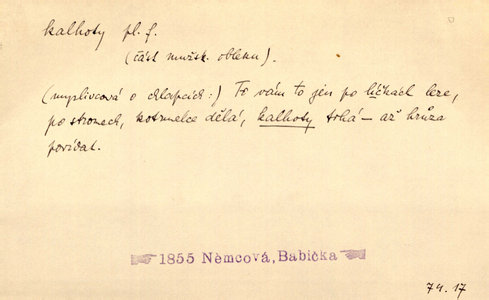 kalhoty pl. f.
(část mužsk. obleku).
(myslivcová o chlapcích:) To vám to jen po líčkách leze,
po stromech, kotrmelce dělá, kalhoty trhá — až hrůza
povídat.
1855 Němcová, Babička
74.17